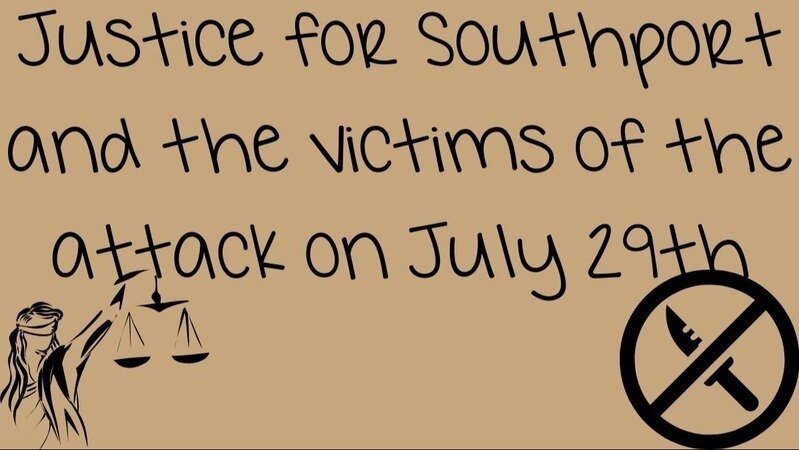 Justice for Southport
and the victims of the
attack on July 29th